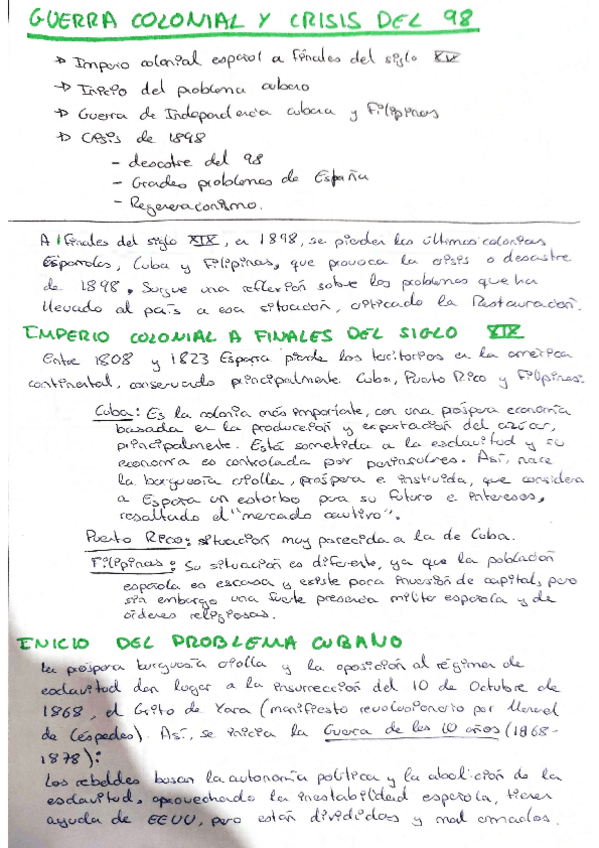 GUERRA COLONIAL Y CRISIS DEL 98
→ Imperio colonial español a finales del siglo XV
→ Inicio del problema cubano
→ Guerra de Independencia cubana y Filipinas
→ Crisis de 1898
- desastre del 98
- Grades problemas de España
- Regeneracionismo.
A finales del siglo XIX, en 1898, se pierden las últimas colonias
Españolas, Cuba y Filipinas, que provoca la crisis o desastre
de 1898. Surge una reflexión sobre los problemas que ha
llevado al país a esa situación, criticado la Restauración.
IMPERIO COLONIAL A FINALES DEL SIGLO XIX
Entre 1808 y 1823 España pierde los territorios en la america
continental, conservando principalmente Cuba, Puerto Rico y Filipinas:
Cuba: Es la colonia más importante, con una próspera economía
basada en la produccion y exportación del azúcar,
principalmente. Está sometida a la esclavitud y su
economía es controlada por peninsulares. Así, nace
la burguesía criolla, próspera e instruida, que considera
a España un estorbo para su futuro e intereses,
resaltado el "mercado cautivo".
Puerto Rico: situación muy parecida a la de Cuba.
Filipinas: Su situación es diferente, ya que la población
española es escasa y existe poca inversión de capital, pero
sin embargo una fuerte presencia militar española y de
órderes religiosas.
INICIO DEL PROBLEMA CUBANO
La próspera burguesía criolla y la oposición al régimen de
esclavitud dan lugar a la insurrección del 10 de Octubre de
1868, el Grito de Yara (manifiesto revolucionario por Manuel
de Céspedes). Así, se inicia la Guerra de los 10 años (1868-
1878):
Los rebeldes buscan la autonomía política y la abolición de la
esclavitud, aprovechado la inestabilidad española, tienen
ayuda de EEUU, pero están divididos y mal armados.